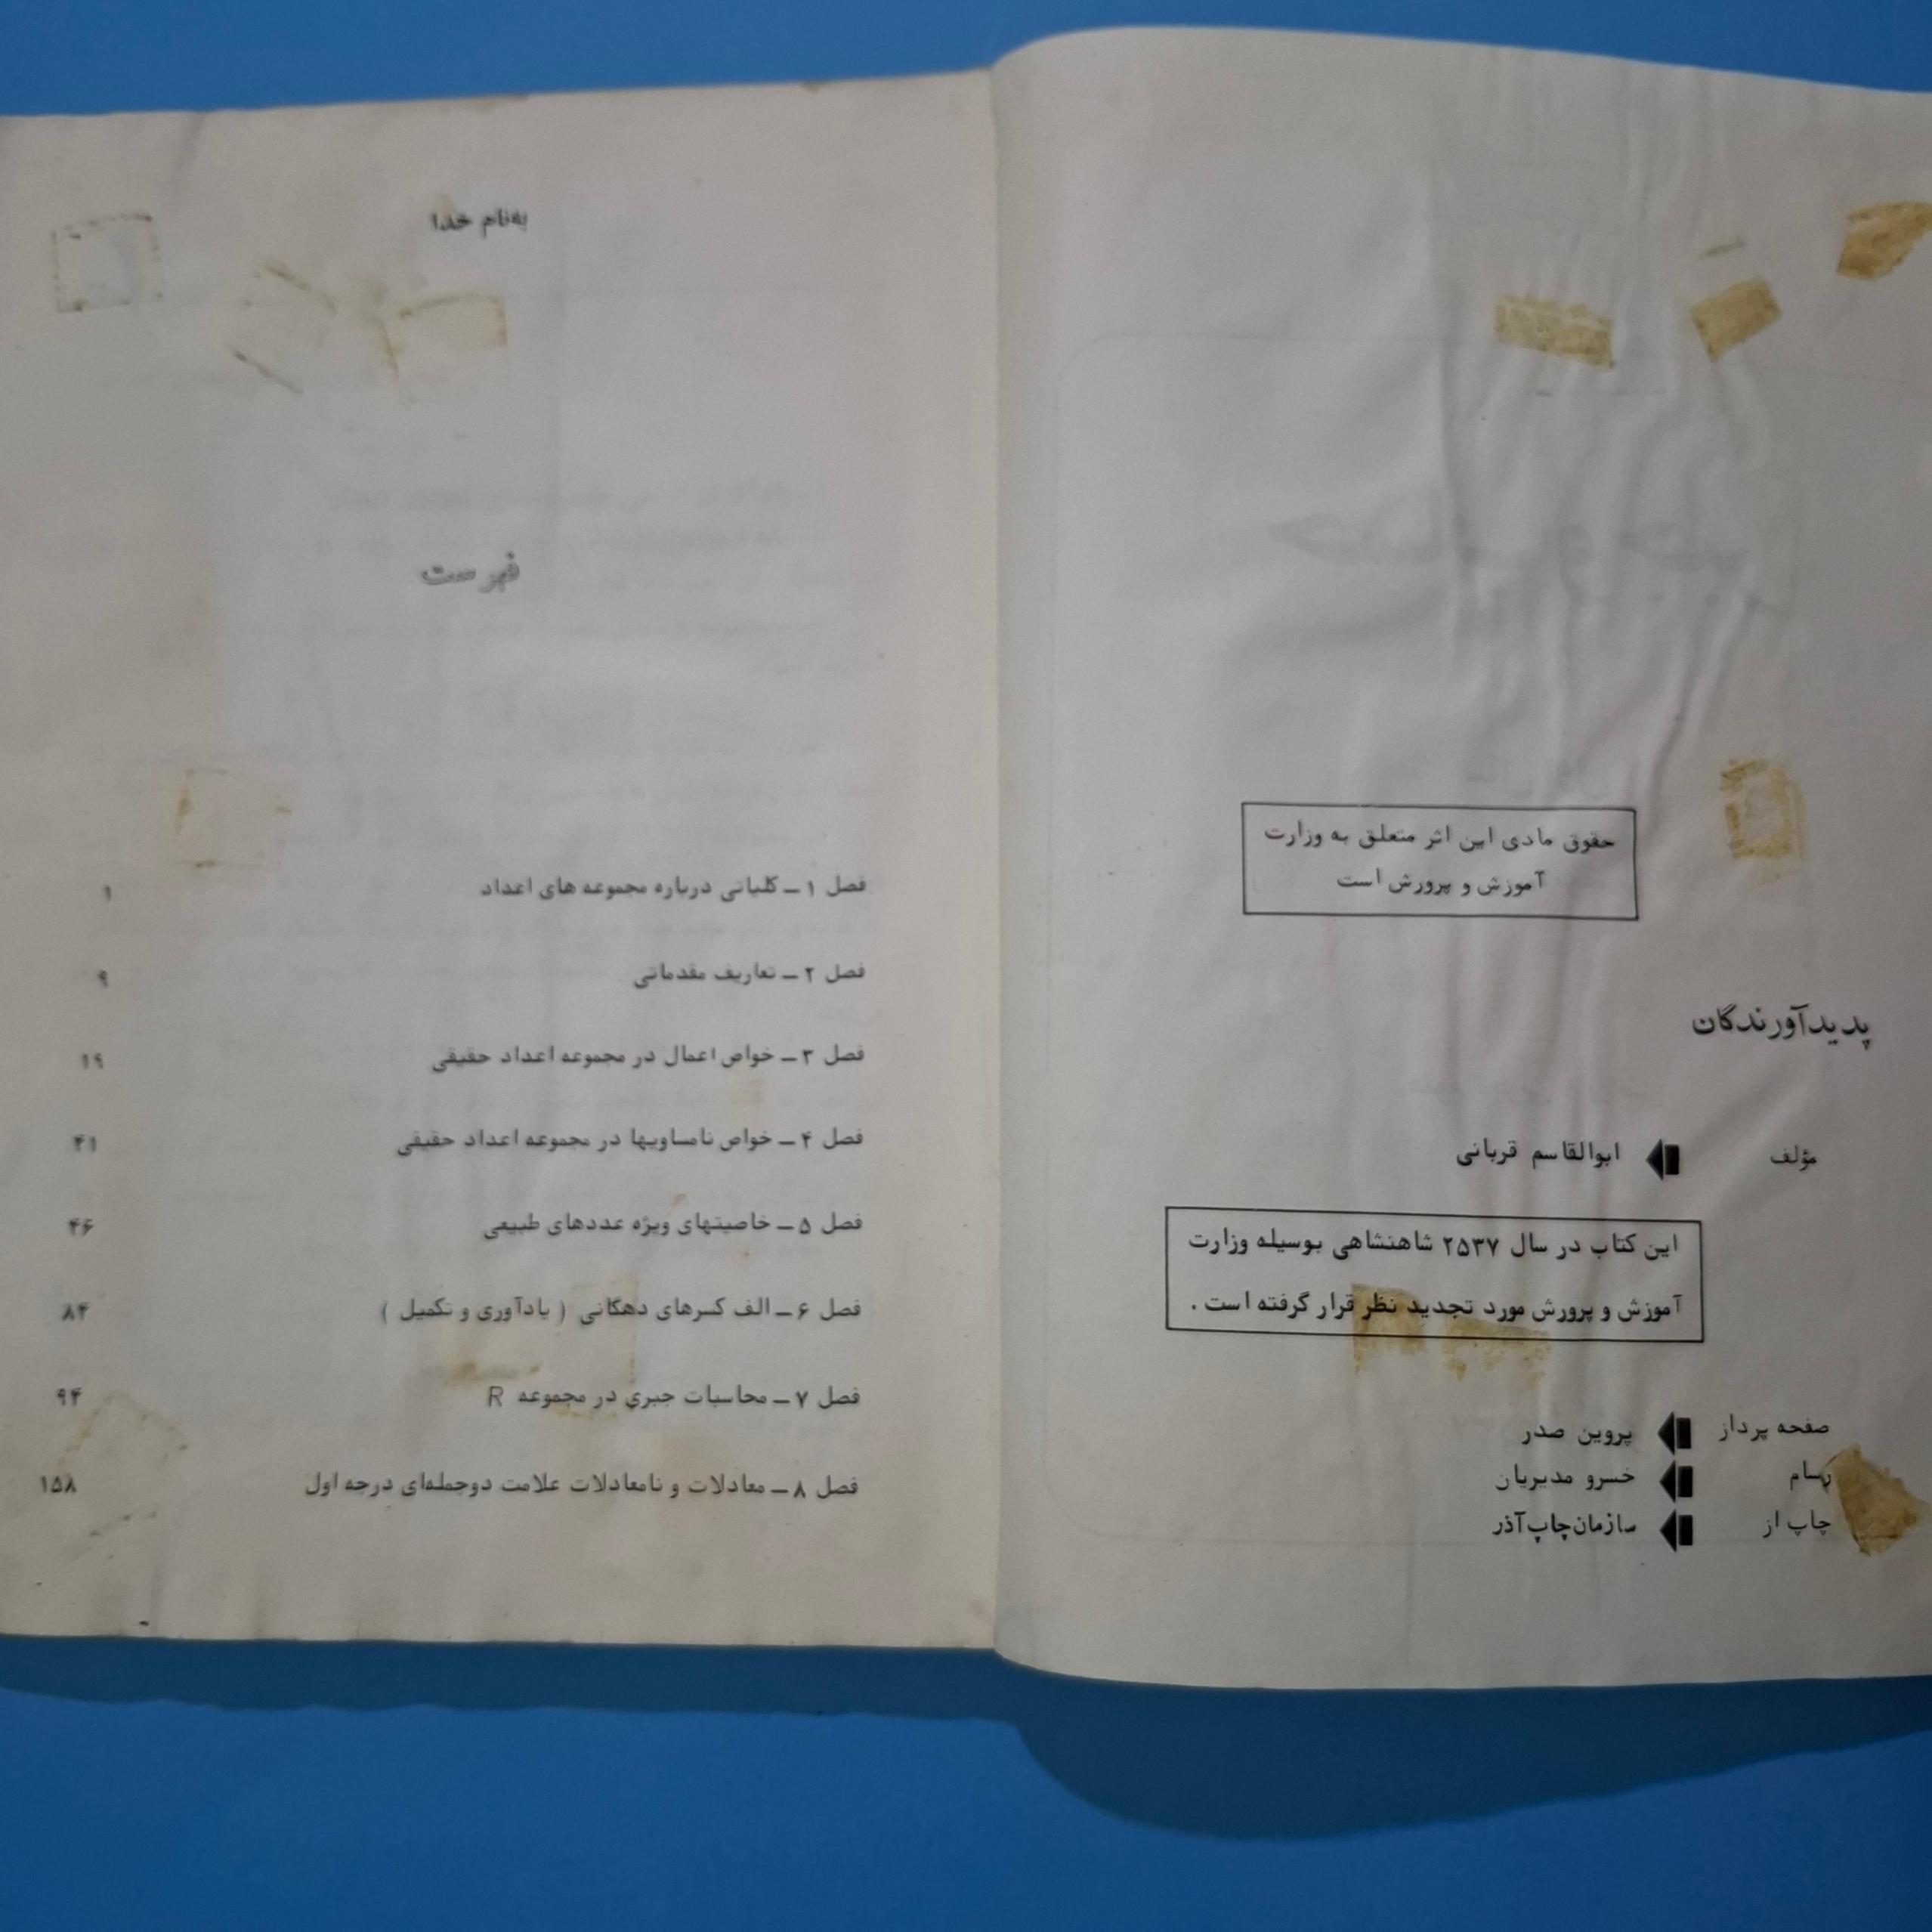 حقوق مادی این اثر متعلق به وزارت
آموزش و پرورش است
پدیدآورندگان
مؤلف ابوالقاسم قربانی
این کتاب در سال ۲۵۳۷ شاهنشاهی بوسیله وزارت
آموزش و پرورش مورد تجدید نظر قرار گرفته است .
صفحه پرداز پروین صدر
رسام خسرو مدیریان
چاپ از سازمان چاپ آذر
به نام خدا
فهرست
فصل ۱ – کلیاتی درباره مجموعه های اعداد ۱
فصل ۲ – تعاریف مقدماتی ۹
فصل ۳ – خواص اعمال در مجموعه اعداد حقیقی ۱۹
فصل ۴ – خواص نامساویها در مجموعه اعداد حقیقی ۴۱
فصل ۵ – خاصیتهای ویژه عددهای طبیعی ۴۶
فصل ۶ – الف کسرهای دهگانی ( یادآوری و تکمیل ) ۸۴
فصل ۷ – محاسبات جبری در مجموعه R ۹۴
فصل ۸ – معادلات و نامعادلات علامت دوجمله‌ای درجه اول ۱۵۸